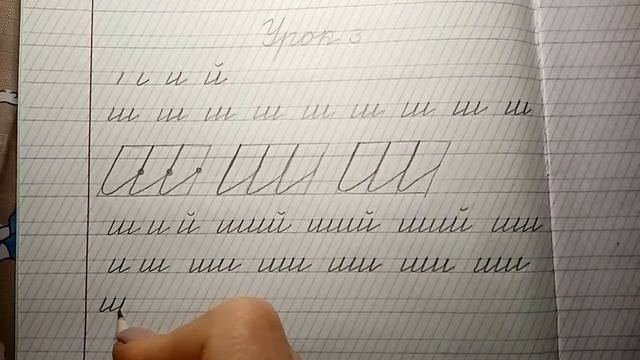 Урок 3
ı и и й
ш ш ш ш ш ш ш ш ш
Ш Ш Ш
ш и й ший ший ший ши
и ш ши ши ши ши ши
ш